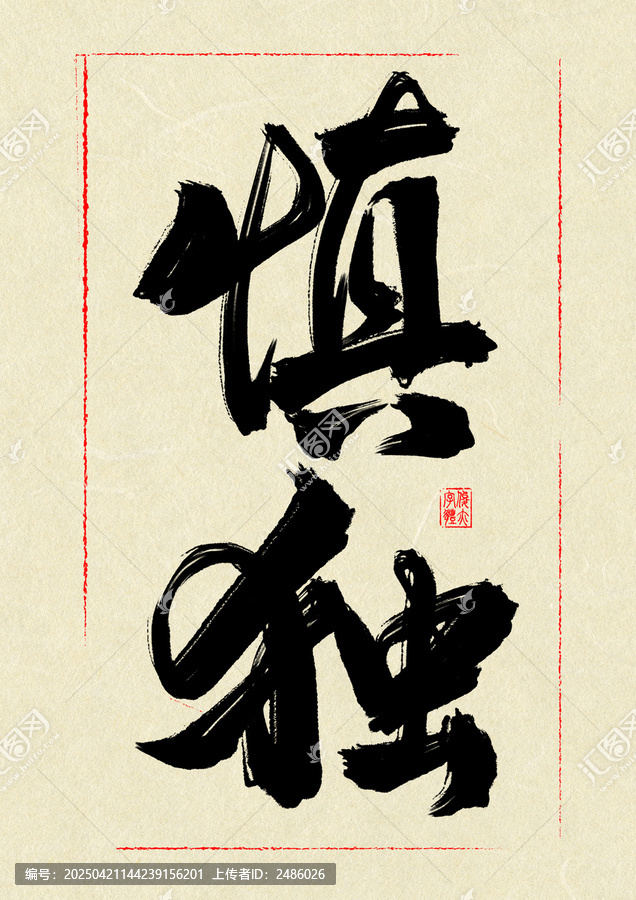 慎
独
编号：20250421144239156201 上传者ID：2486026